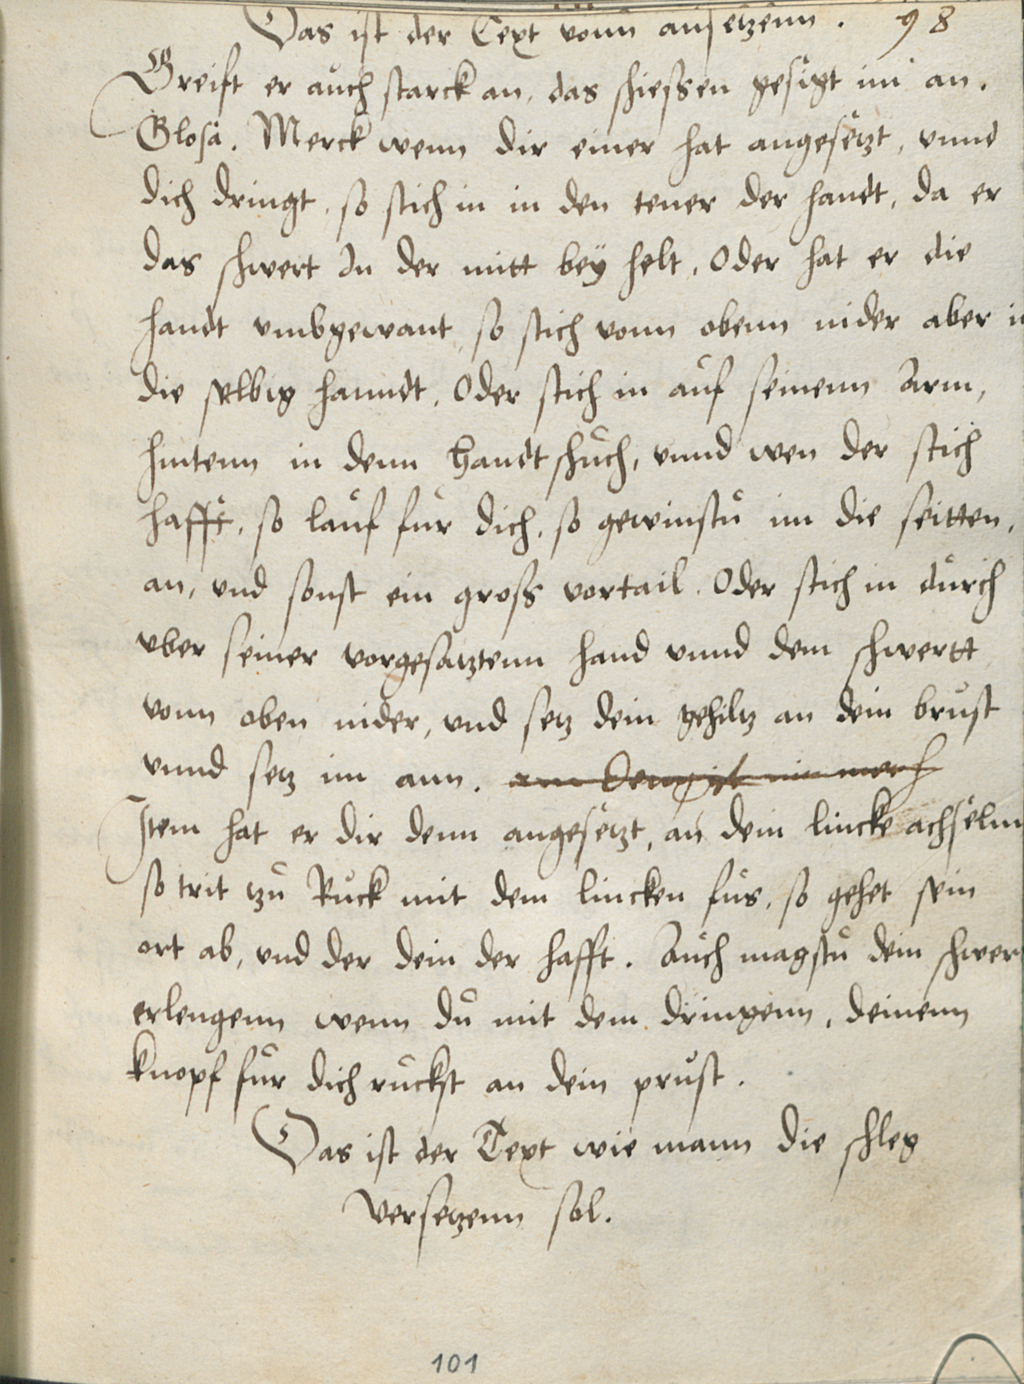 Das ist der Text vonn ansetzenn. 98
Greift er auch starck an, das schiessen gesigt im an.
Glosa. Merck wenn dir einer hat angesetzt, vnnd
dich dringt, so stich in in den tener der handt, da er
das schwert In der mitt bey helt, Oder hat er die
handt vmbgewant, so stich vonn obenn nider aber in
die selbig hanndt, Oder stich in auf seinenn Arm,
hintenn in denn handtschuch, vnnd wen der stich
hafft, so lauf fur dich, so gewinstu im die seitten,
an, vnd sonst ein gross vortail. Oder stich in durch
vber seiner vorgesatztenn hand vnnd dem schwertt
vonn oben nider, vnd setz dein gehiltz an dein brust
vnnd setz im ann.
Item hat er dir denn angesetzt, an dein lincke achselnn
so trit tzu Ruck mit dem lincken fus, so gehet sein
ort ab, vnd der dein der hafft. Auch magstu dein schwer
erlengenn wenn du mit dem dringenn, deinenn
knopf fur dich ruckst an dein prust.
Das ist der Text wie mann die schleg
versetzenn sol.
101